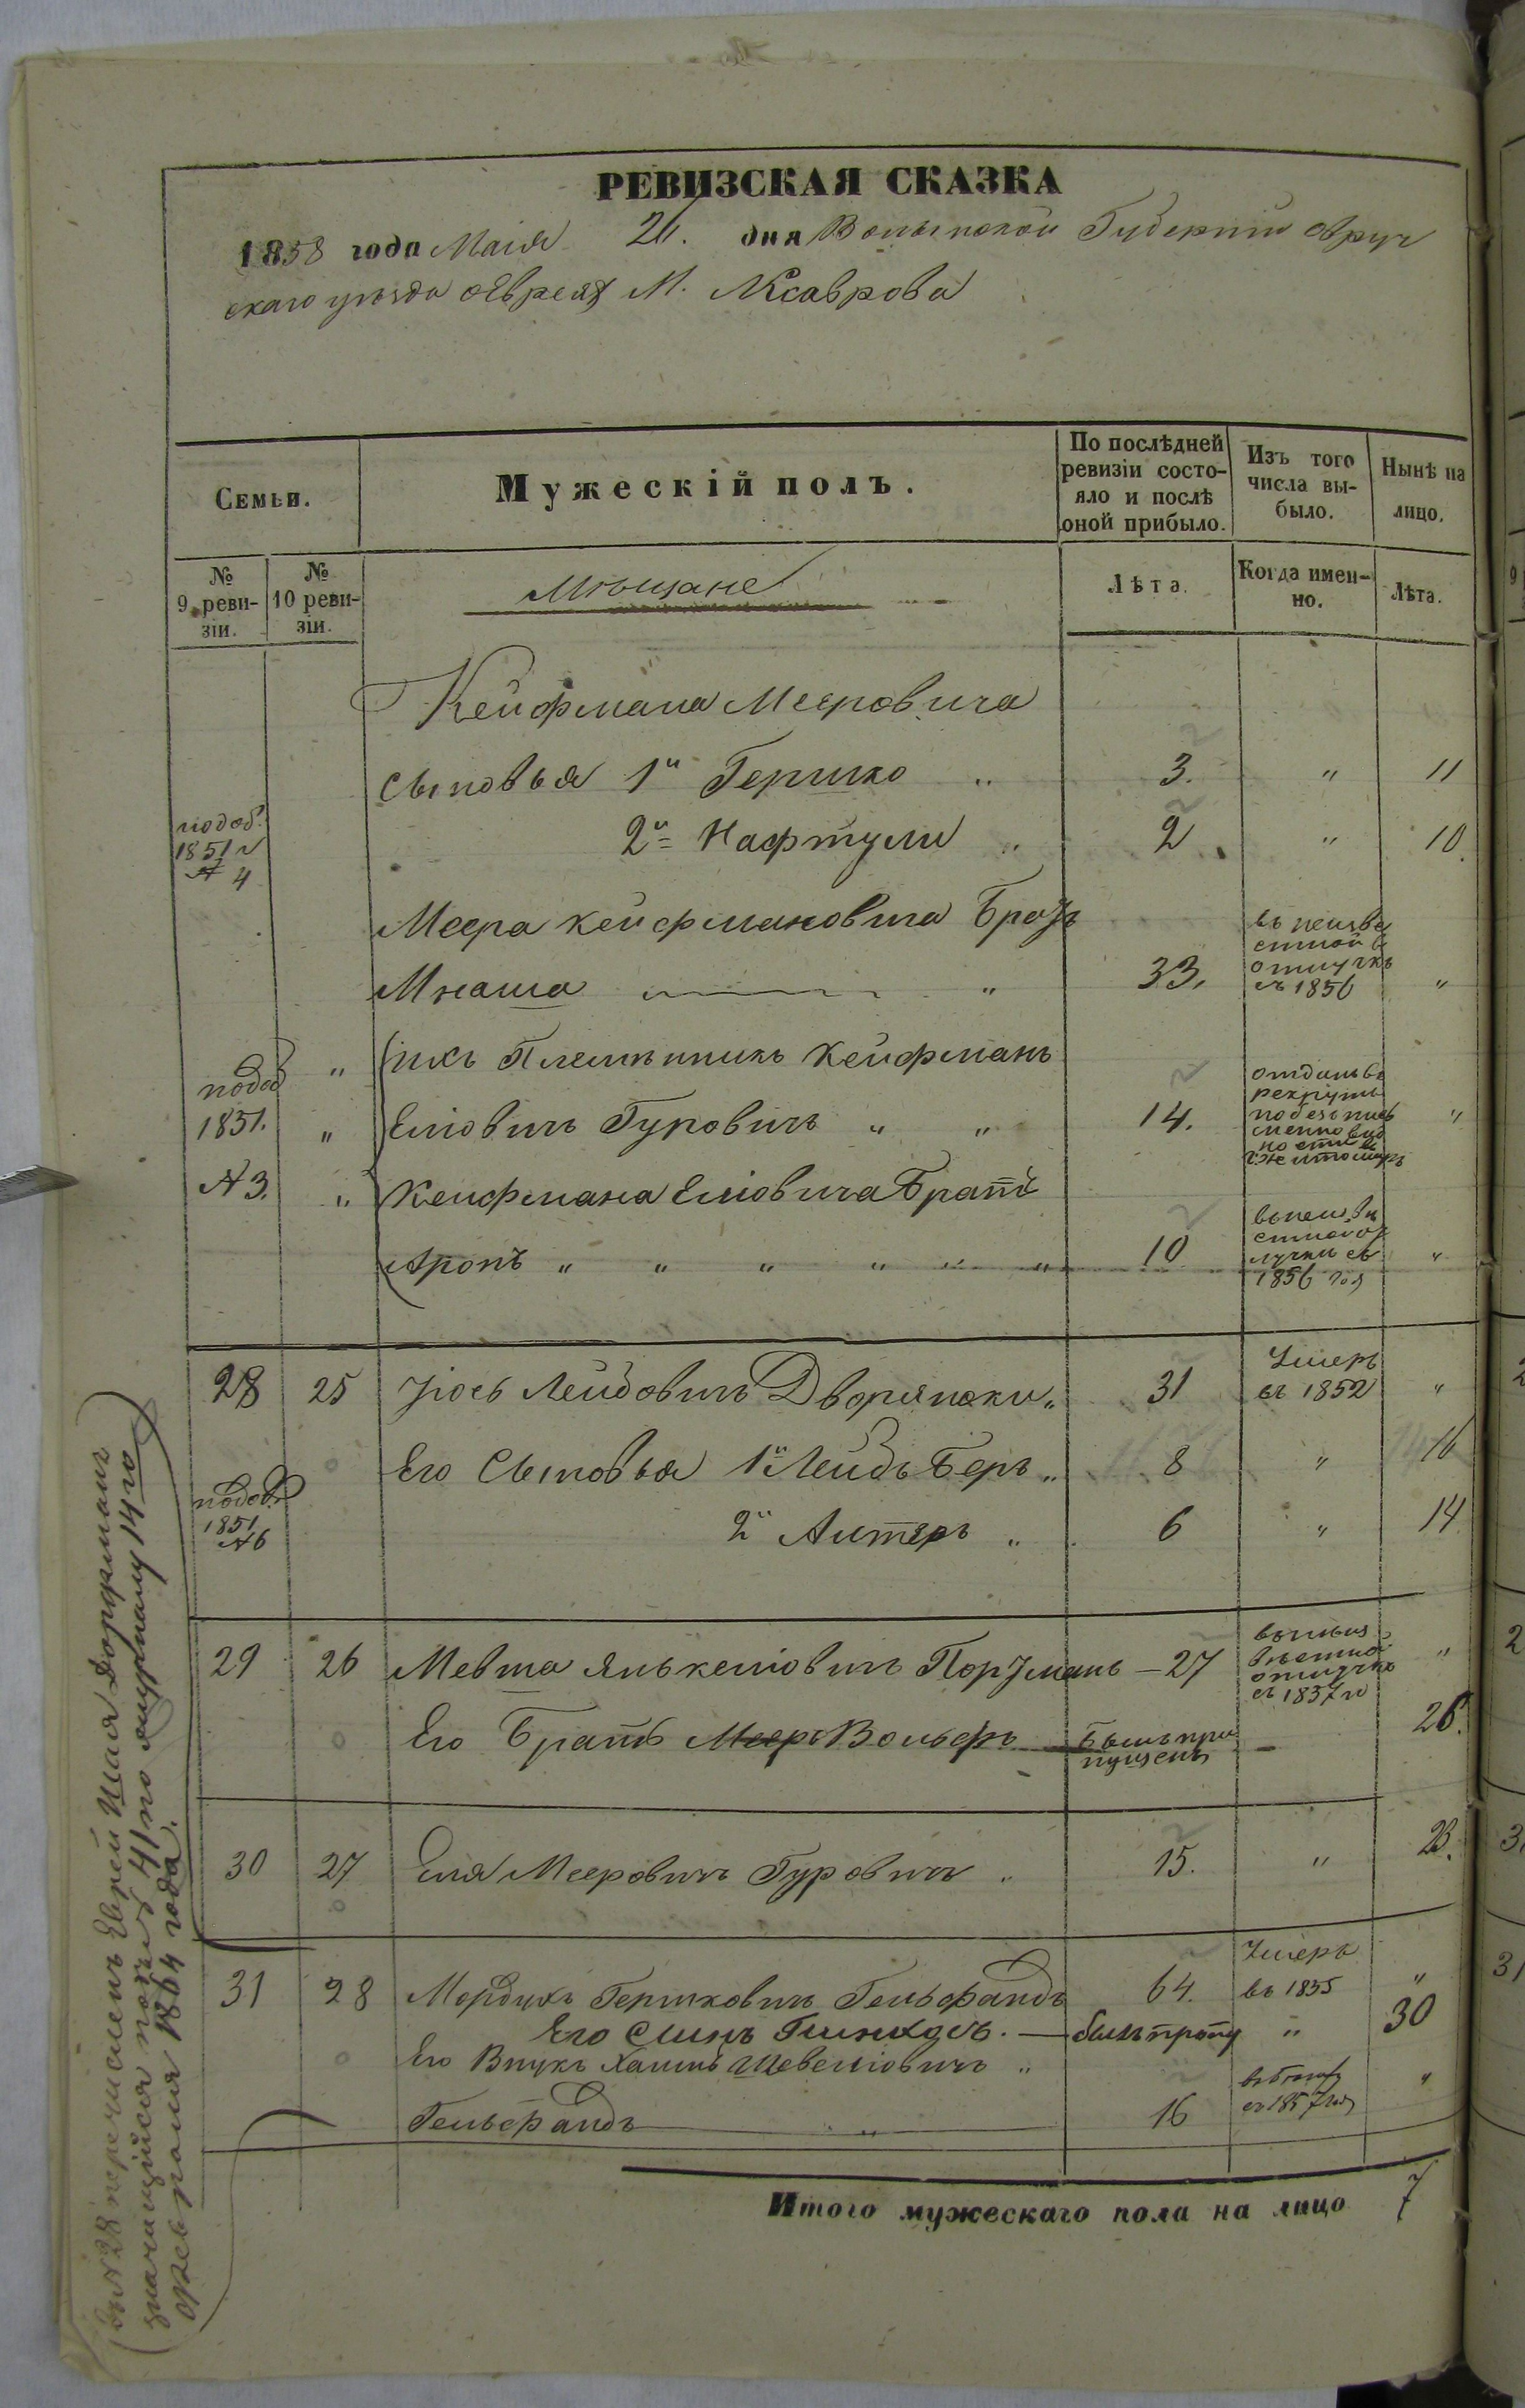 РЕВИЗСКАЯ СКАЗКА
1858 года Маія 26. дня Волынской Губерніи Овруч
скаго уѣзда о Евреях М. Ксаврова
Семьи.
Мужескій полъ.
По послѣдней ревизіи состо-
яло и послѣ
оной прибыло.
Изъ того
числа вы-
было.
Нынѣ на
лицо.
№
9 реви-
зіи.
№
10 реви-
зіи.
Мѣщане
Лѣта.
Когда имен-
но.
Лѣта.
Кейфмана Мееровича
Сыновья 1й Гершко „ 3. „ 11
подоб. 1851 г № 4
2й Нафтули „ 2 „ 10.
Меера Кейфмановича Братъ
Мнаша „ 33. въ неизве
стной
отлучкѣ
съ 1856 „
„ ихъ Племянникъ Кейфманъ
подоб 1851. № 3.
„ Еліовичъ Гуровичъ „ „ 14. отданъ въ
рекруты
„
„ Кейфмана Еліовича Братъ
Аронъ „ „ „ „ „ „ 10
1856 год „
28 25 Іось Лейбовичъ Дворянски „ 31 Умеръ
въ 1852 „
Его Сыновья 1й Лейбъ Беръ „ 8 „ 16
подоб. 1851 № 6
2й Алтеръ „ 6 „ 14
29 26 Мевша Янкеліовичъ Портманъ — 27
отлучкѣ
съ 1857 г „
Его Братъ Вольфъ Былъ про
пущенъ — 26.
30 27 Еля Мееровичъ Гуровичъ „ 15. „ 23.
31 28 Мордухъ Гершковичъ Гельфандъ 64. Умеръ
въ 1855 „
Его Сынъ — былъ пропу „ 30
Его Внукъ Хаимъ Шевеліовичъ „
Гельфандъ „ 16
съ 1857 год „
Итого мужескаго пола на лицо 7
(Въ № 28 перечисленъ Еврей Шая Дорфманъ
значущійся по № 41 по журналу 14го
Февраля 1864 года.